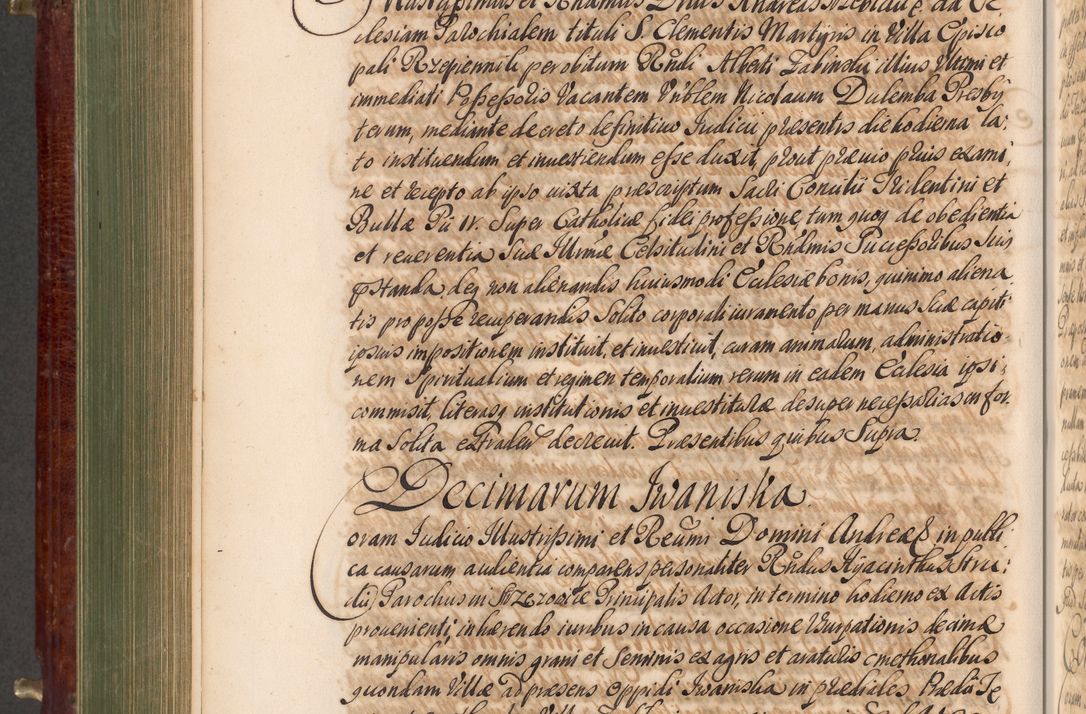 Illustrissimus et Rndmus Dnus Andreas
clesiam Parochialem tituli S. Clementis Martyris in Villa Episco
pali Rzepiennik per obitum Rndi Alberti Zabinski illius ultimi et
immediati Possessoris Vacantem Vnblem Nicolaum Dulemba Presby
terum, mediante decreto definitivo Iudicii presentis die hodierna la:
to instituendum et investiendum esse duxit, prout prævio prius exami,
ne et recepto ab ipso iuxta prescriptum Sacri Concilii Tridentini et
Bullæ Pii IV. Super Catholicæ fidei professione, tum quoq de obedientia
et reverentia Suæ Illmæ Celsitudini et Rndmis Successoribus suis
pstanda, deq non alienandis huiusmodi Ecclesiæ bonis, quinimo aliena
tis pro posse recuperandis Solito corporali iuramento per manus suæ capiti
ipsius impositionem instituit, et investivit, curam animarum, administratio-
nem Spiritualium et regimen temporalium rerum in eadem Ecclesia ipsi:
commisit, literasq institutionis et investituræ desuper necessarias in for
ma Solita extradere decrevit. Præsentibus quibus Supra.
Decimarum Iwaniska
oram Iudicio Illustrissimi et Reumi Domini Andreæ in publi
ca causarum audientia comparens personaliter Rndus Hyacinthus
Parochus in Principalis Actor, in termino hodierno ex Actis
proveniente, inhærendo iuribus in causa occasione Usurpationis decimæ
manipularis omnis grani et Seminis ex agris et araturis cmethonalibus
quondam Villæ ad præsens Oppidi Iwaniska in prædiales Prædii Te